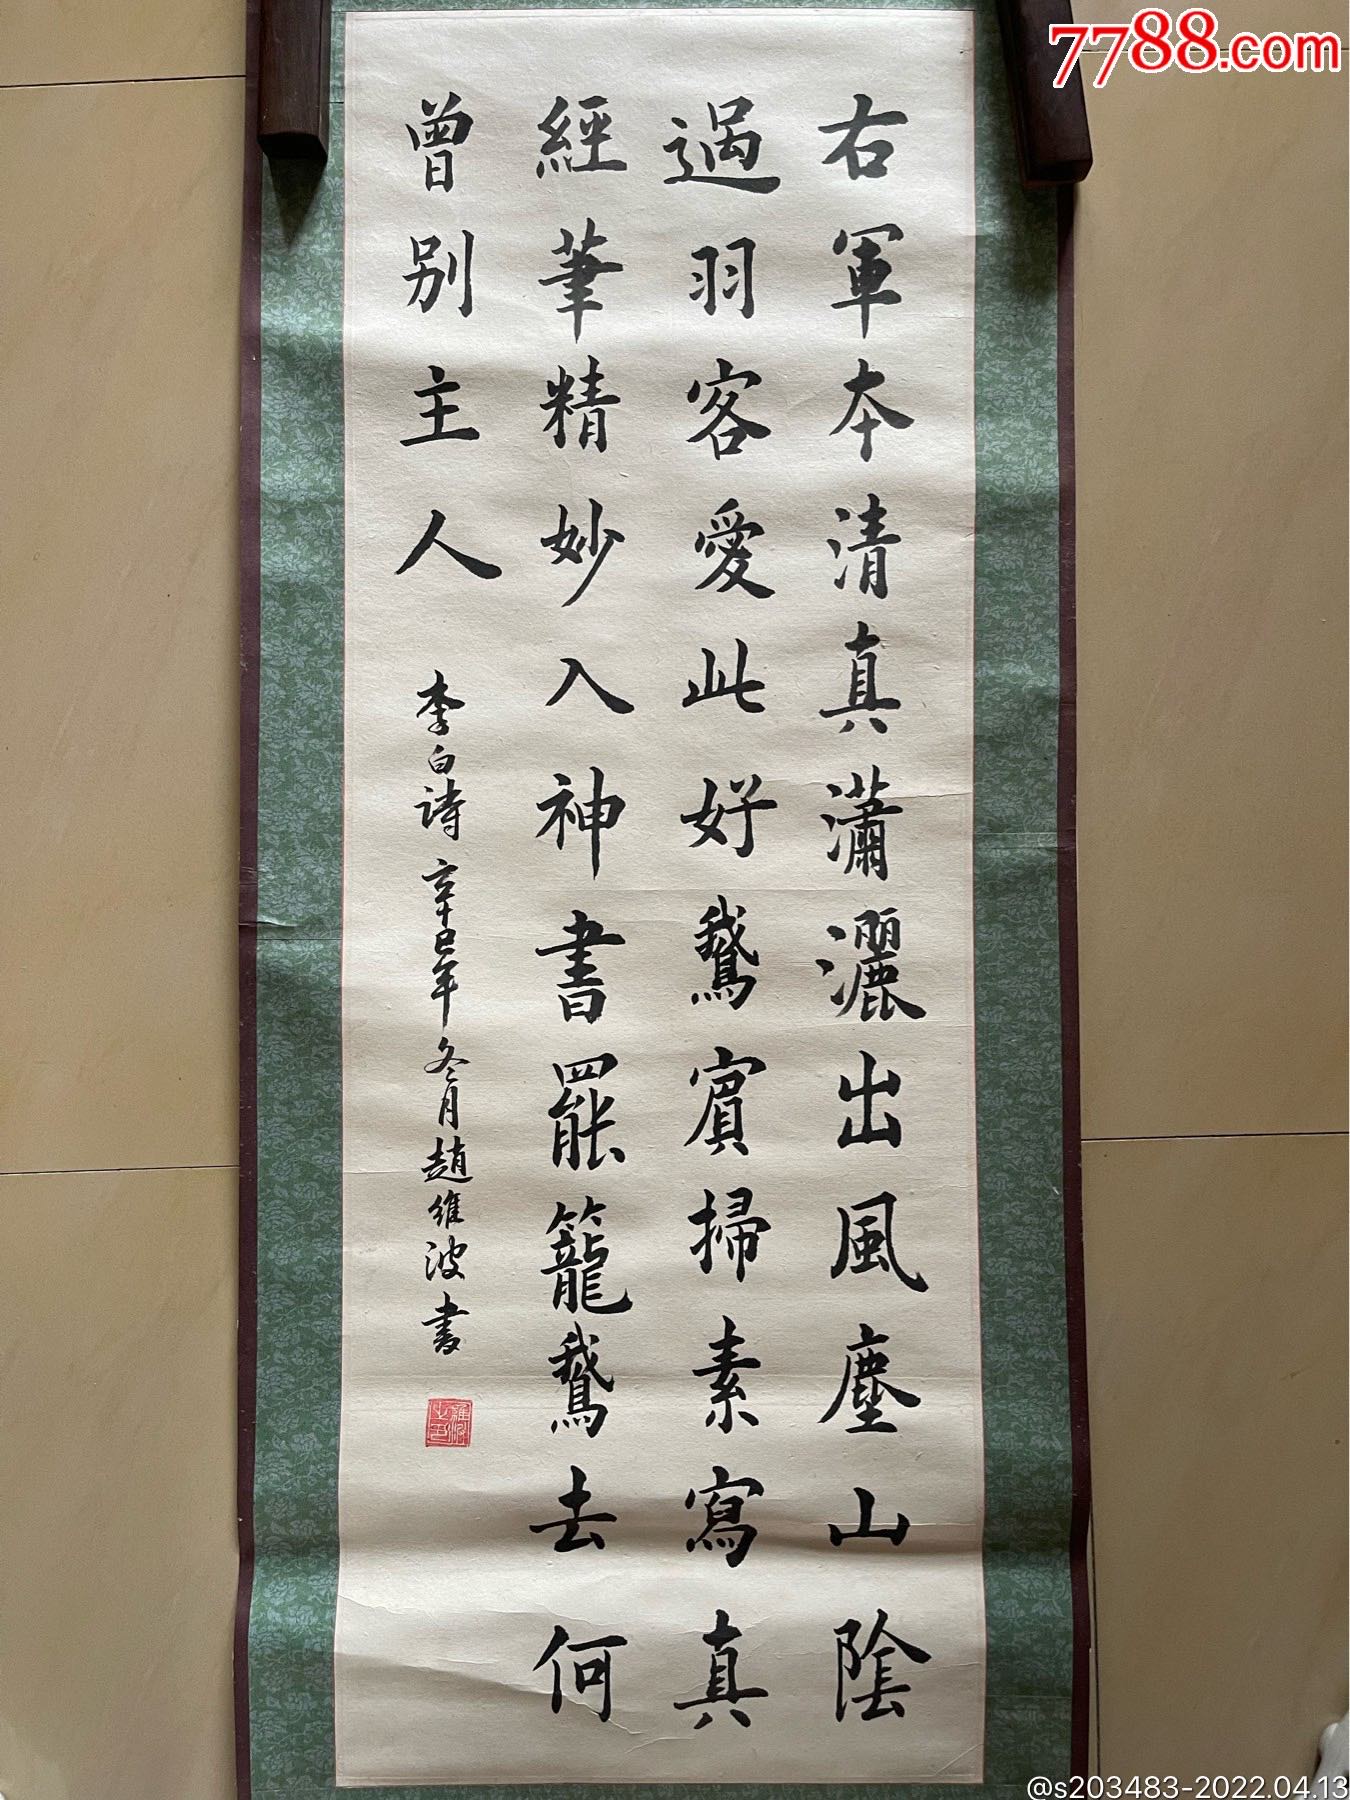 右軍本清真瀟灑出風塵山陰
過羽客愛此好鵝賓掃素寫真
經筆精妙入神書罷籠鵝去何
曾别主人
李白詩 辛巳年冬月趙維波書
維波之印
7788.com
@s203483-2022.04.13